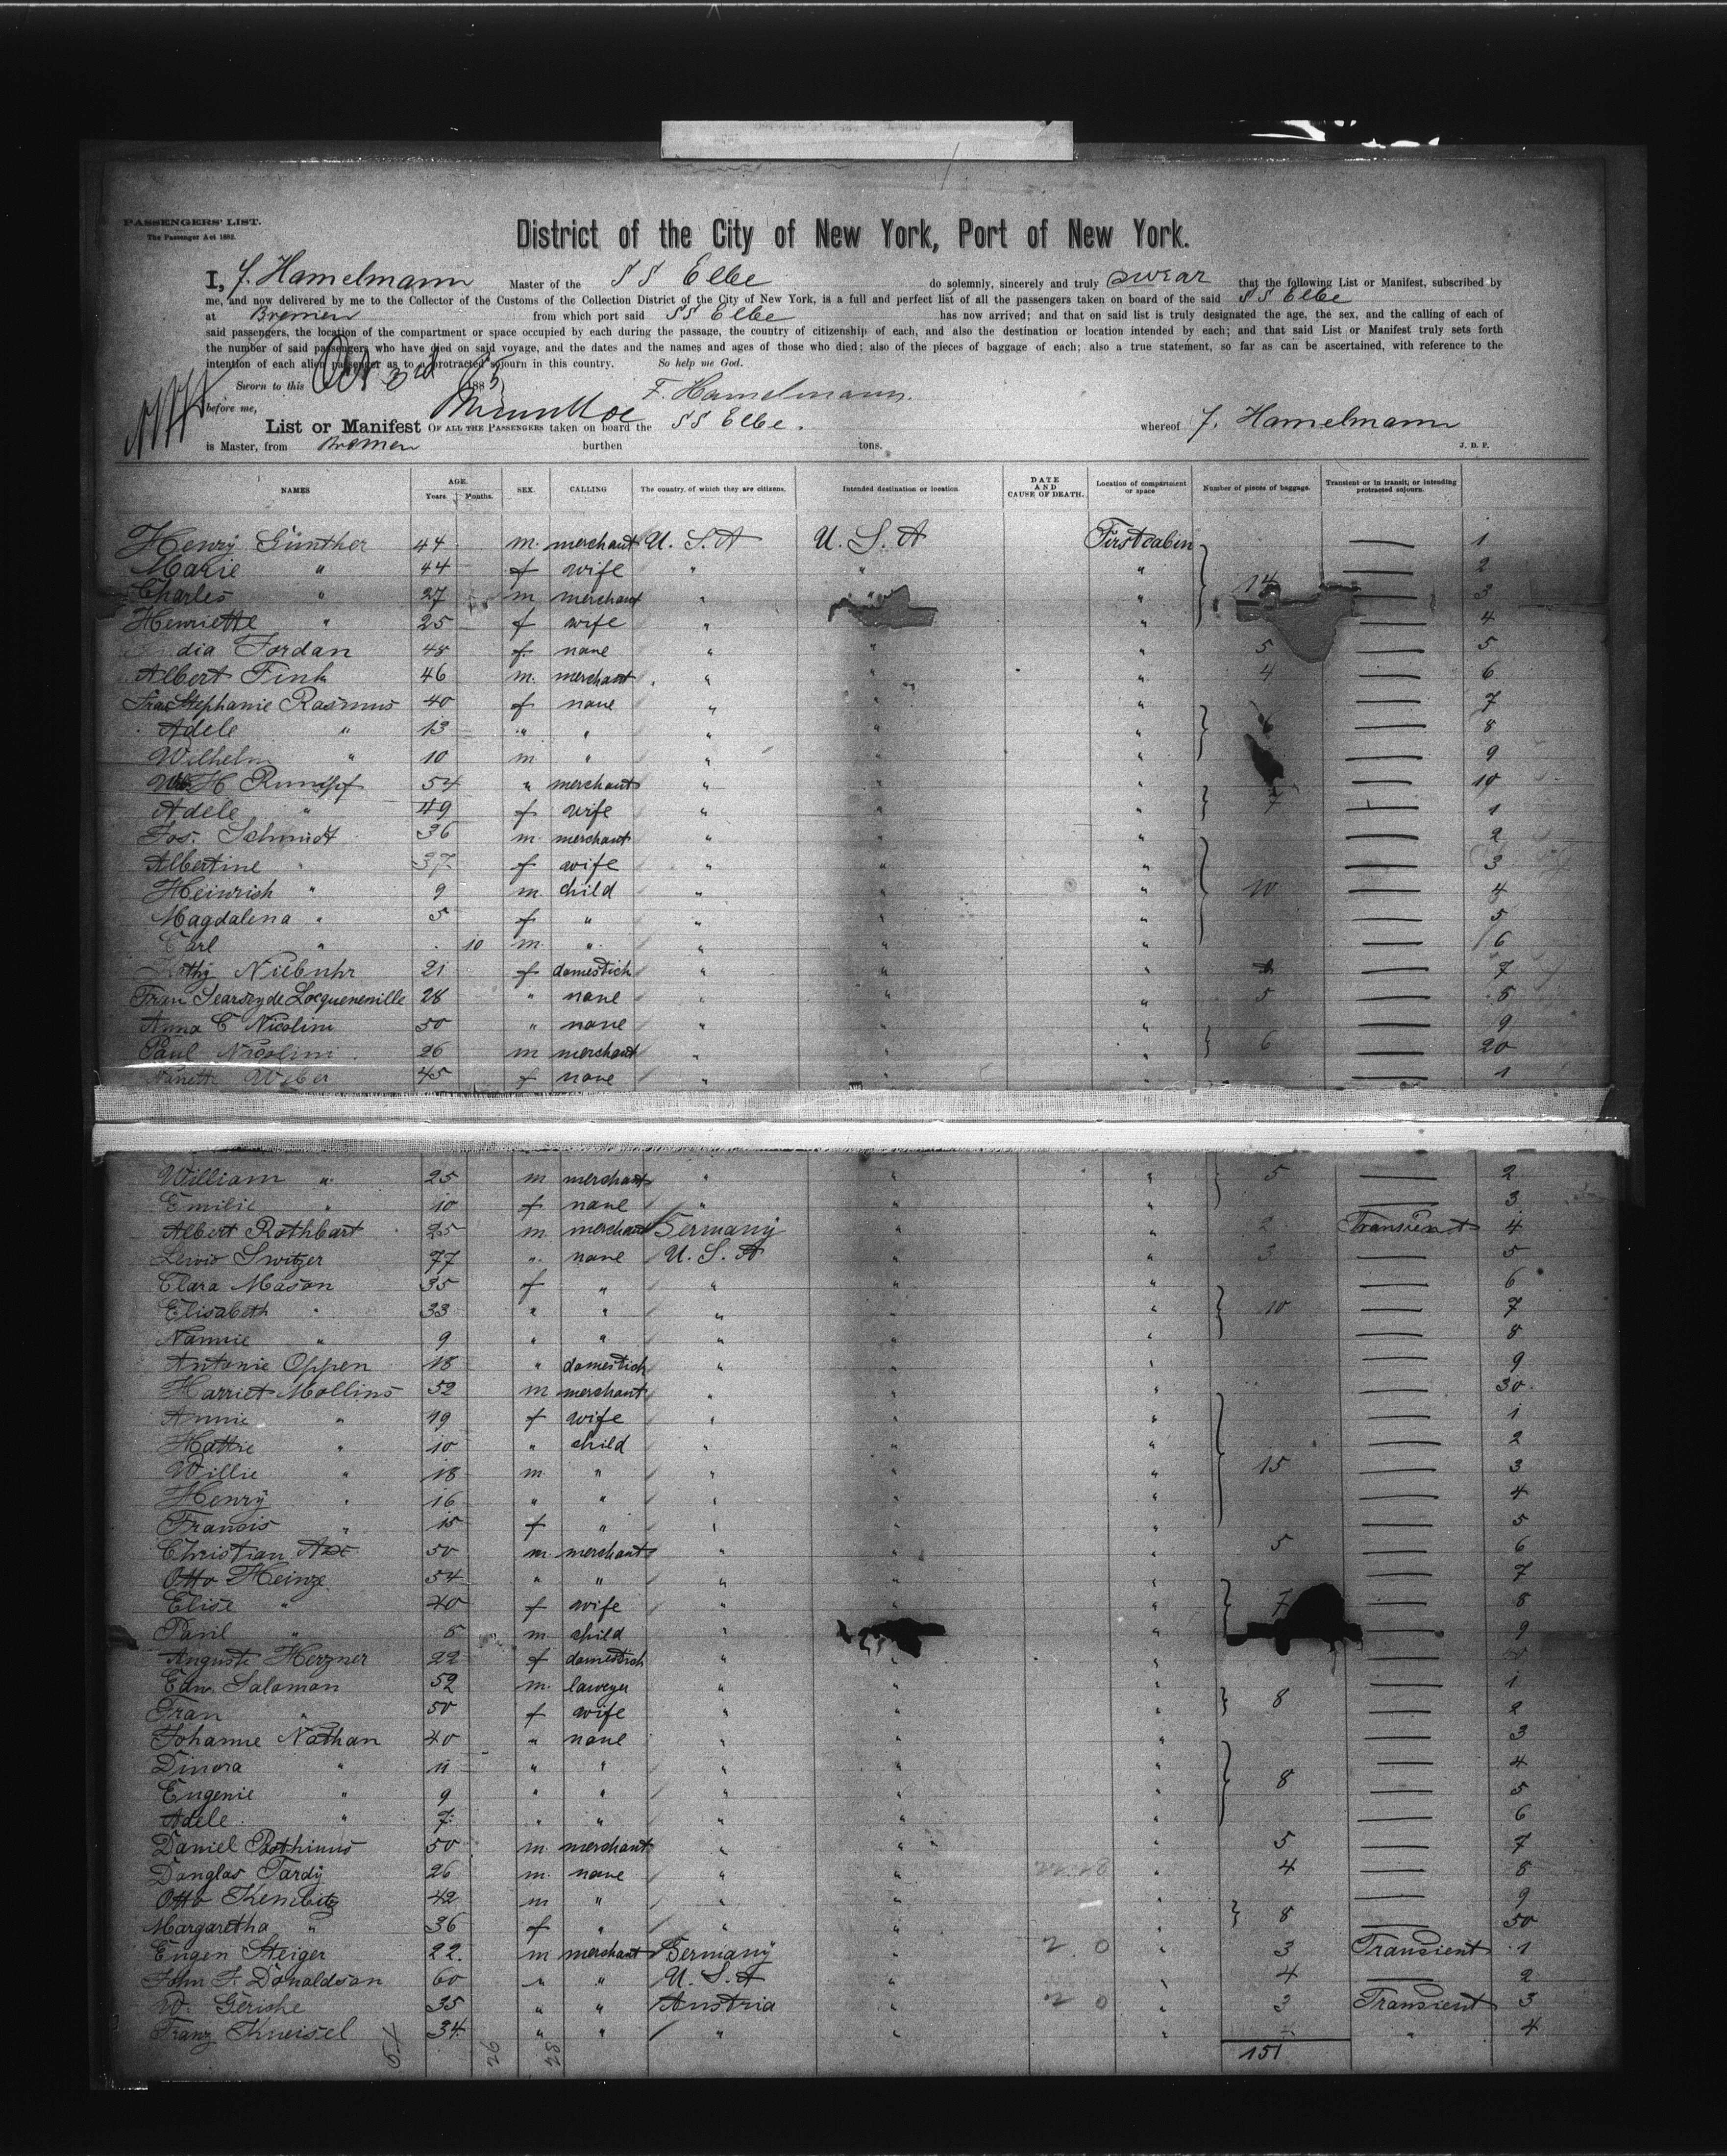 PASSENGERS' LIST.
The Passenger Act 1882.
District of the City of New York, Port of New York.
I, F. Hamelmann Master of the SS Elbe do solemnly, sincerely and truly swear that the following List or Manifest, subscribed by
me, and now delivered by me to the Collector of the Customs of the Collection District of the City of New York, is a full and perfect list of all the passengers taken on board of the said SS Elbe
at Bremen from which port said SS Elbe has now arrived; and that on said list is truly designated the age, the sex, and the calling of each of
said passengers, the location of the compartment or space occupied by each during the passage, the country of citizenship of each, and also the destination or location intended by each; and that said List or Manifest truly sets forth
the number of said passengers who have died on said voyage, and the dates and the names and ages of those who died; also of the pieces of baggage of each; also a true statement, so far as can be ascertained, with reference to the
intention of each alien passenger as to a protracted sojourn in this country. So help me God.
Sworn to this Oct 3rd 1885
before me, F. Hamelmann.
List or Manifest OF ALL THE PASSENGERS taken on board the SS Elbe. whereof F. Hamelmann
is Master, from Bremen burthen tons. J. D. P.
NAMES AGE. Years. Months. SEX. CALLING The country, of which they are citizens. Intended destination or location. DATE AND CAUSE OF DEATH. Location of compartment or space Number of pieces of baggage. Transient or in transit, or intending protracted sojourn.
Henry Günther 44 m. merchant U. S. A U. S. A First cabin — 1
Marie " 44 f wife " " " — 2
Charles " 27 m merchant " " " 14 — 3
Henriette " 25 f wife " " — 4
dia Jordan 48 f. none " " " 5 — 5
Albert Fink 46 m. merchant " " " 4 — 6
Frau Stephanie Rasmus 40 f none " " " — 7
Adele " 13 " " " " " 6 — 8
Wilhelm " 10 m " " " " — 9
H Rumpf 54 " merchant " " " — 10
Adele " 49 f wife " " " 7 — 1
Jos. Schmidt 36 m merchant " " " — 2
Albertine " 37 f wife " " " — 3
Heinrich " 9 m child " " " 10 — 4
Magdalena " 5 f " " " " — 5
Carl " 10 m " " " " — 6
Niebuhr 21 f domestich " " " — 7
Frau de Locqueneville 28 " none " " " 5 — 8
Anna C Nicolini 50 " none " " " — 9
Paul Nicolini 26 m merchant " " " 6 — 20
Nanette Weber 45 f none " " " — 1
William " 25 m merchant " " " 5 — 2
Emilie " 10 f none " " " — 3
Albert Rothbart 25 m merchant Germany " " 2 Transient 4
Lewis Switzer 77 " none U. S. A " " 3 — 5
Clara Mason 35 f " " " " — 6
Elisabeth " 33 " " " " " 10 — 7
Nannie " 9 " " " " " — 8
Antonie Oppen 18 " domestich " " " — 9
Harriet Mollins 52 m merchant " " " — 30
Annie " 49 f wife " " " — 1
Hattie " 10 " child " " " — 2
Willie " 18 m " " " " 15 — 3
Henry " 16 " " " " " — 4
Francis " 15 f " " " " — 5
Christian Axe 50 m. merchant " " " 5 — 6
Otto Heinze 54 " " " " " — 7
Elise " 40 f wife " " " 7 — 8
Paul " 5 m child " " — 9
Auguste Herzner 22 f domestich " " " — 40
Edw. Salomon 52 m. lawyer " " " — 1
Frau " 50 f wife " " " 8 — 2
Johanne Nathan 40 " none " " " — 3
Dinora " 11 " " " " " — 4
Eugenie " 9 " " " " " 8 — 5
Adele " 7 " " " " " — 6
Daniel 50 m merchant " " " 5 — 7
Douglas Tardy 26 m. none " " " 4 — 8
Otto 42 m " " " " — 9
Margaretha " 36 f " " " " 8 — 50
Eugen Steiger 22 m merchant Germany " 2 0 " 3 Transient 1
John F. Donaldson 60 " " U. S. A " " 4 — 2
W. Gerishe 35 " " Austria " 2 0 " 3 Transient 3
Franz Kneisel 34 " " " " " 4 " 4
54 26 28 151